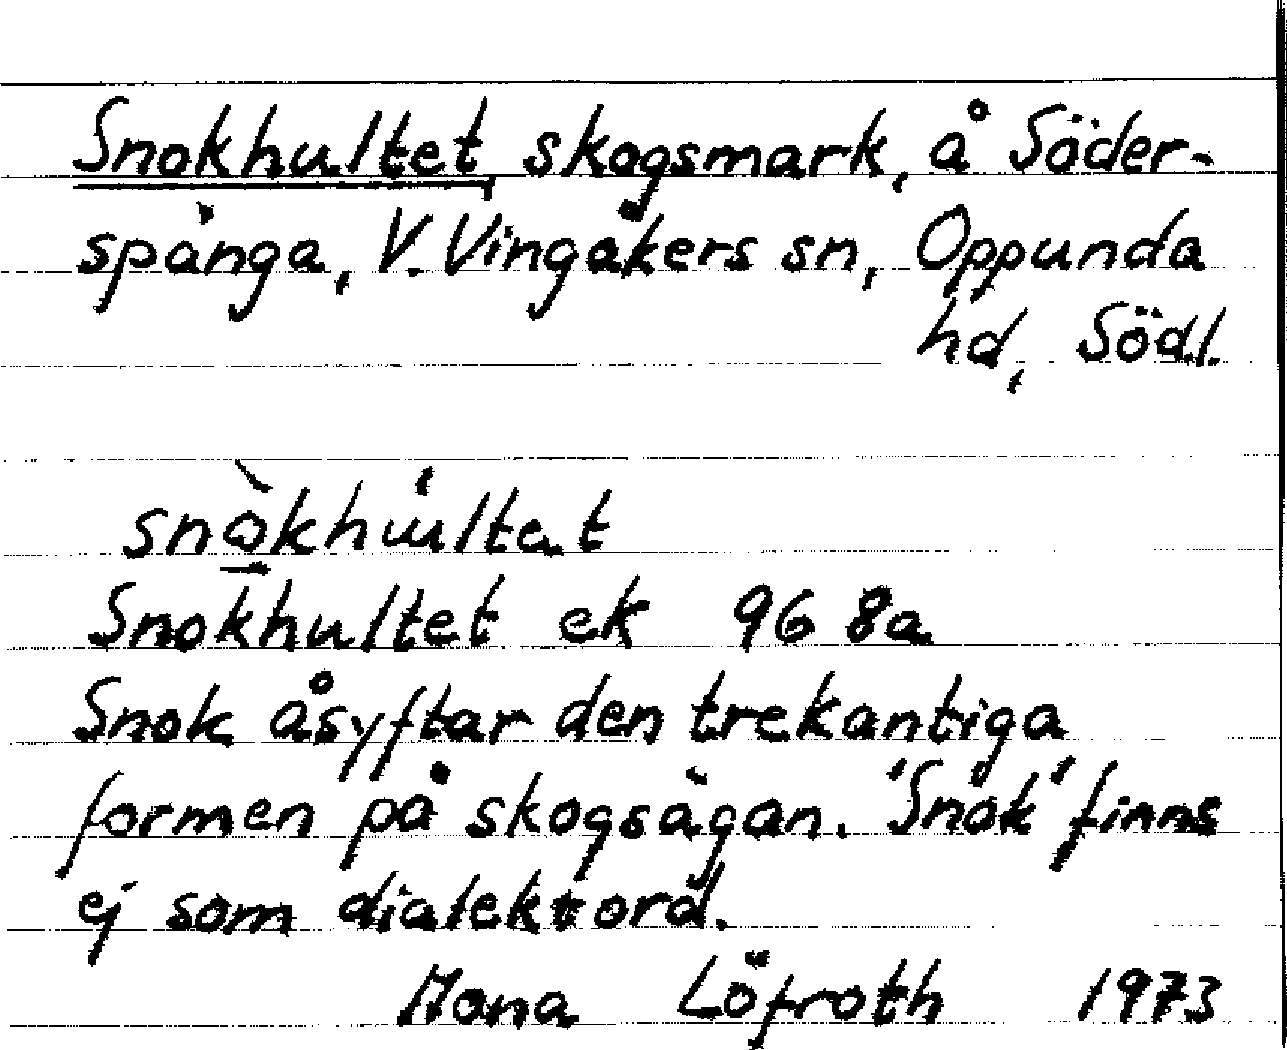 Snokhultet, skogsmark, å Söder-
spånga, V. Vingåkers sn, Oppunda
hd, Södl.
Snokhultet ek 96 8a
Snok åsyftar den trekantiga
formen på skogsägan. 'Snok' finns
ej som dialektord.
Mona Löfroth 1973